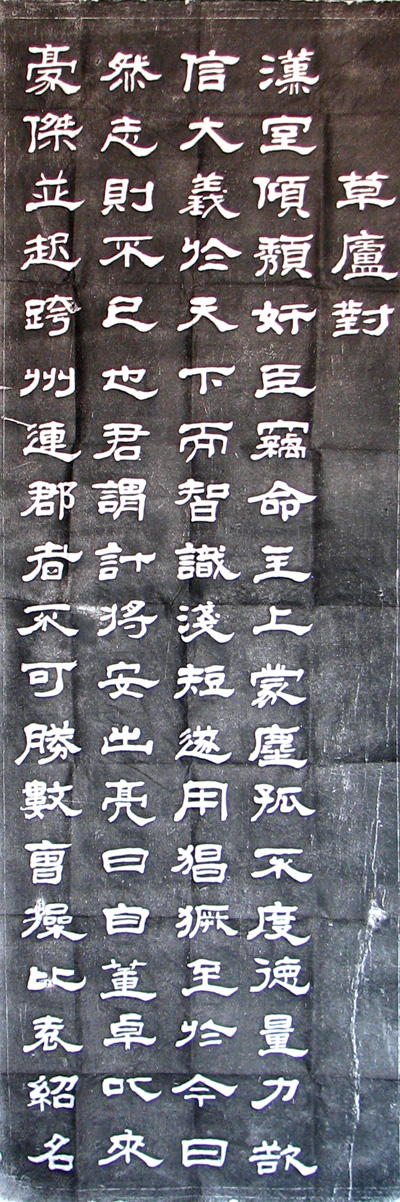 草廬對
漢室傾頹奸臣竊命主上蒙塵孤不度德量力欲
信大義於天下而智識淺短遂用猖獗至於今日
然志則不已也君謂計將安出亮曰自董卓以來
豪傑並起跨州連郡者不可勝數曹操比袁紹名